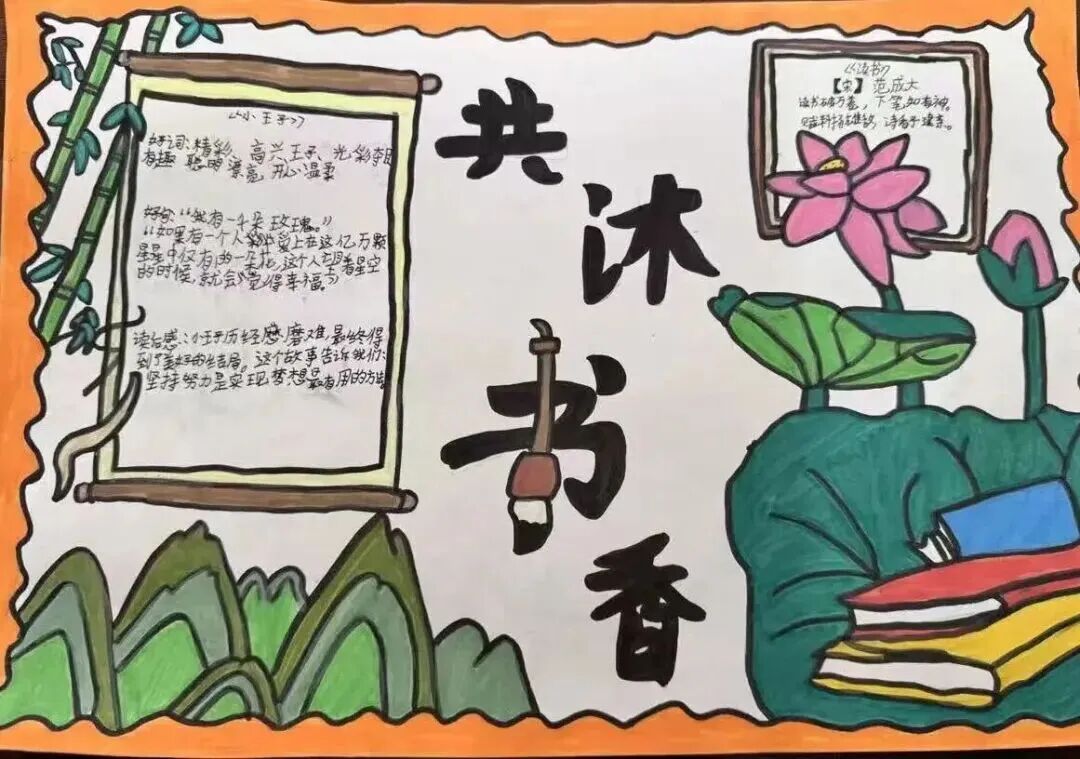 《小王子》
好词:精彩、高兴、王子、光彩夺目
有趣 聪明 漂亮 开心 温柔
好句:“我有一朵玫瑰。”
“如果有一个人 上在这亿万颗
星星中仅有的一朵花,这个人望着星空
的时候,就会觉得幸福。”
读后感:小王子历经磨难,最终得
到了美好的结局。这个故事告诉我们:
坚持努力是实现梦想最有用的方法
共
沐
书
香
《读书》
【宋】 范成大
读书破万卷,下笔如有神。
诗看子建亲。